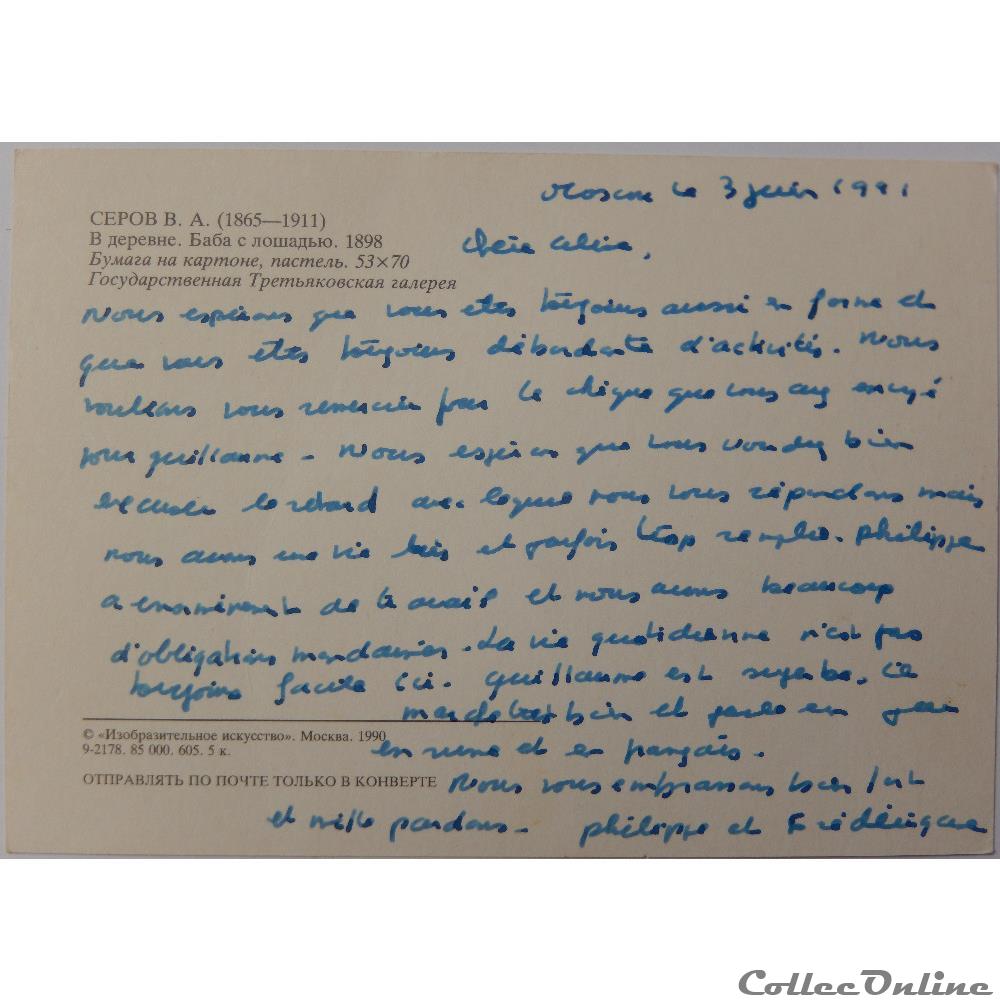 Moscou le 3 juin 1991
СЕРОВ В. А. (1865—1911)
В деревне. Баба с лошадью. 1898
Бумага на картоне, пастель. 53×70
Государственная Третьяковская галерея
Chère
Nous espérons que vous êtes toujours aussi en forme et
que vous êtes toujours débordante d'activités. Nous
voulions vous remercier pour le chèque que vous avez envoyé
pour Guillaume - Nous espérons que vous voudrez bien
excuser le retard avec lequel nous vous répondons mais
nous avons une vie très et parfois trop remplie. Philippe
a énormément de travail et nous avons beaucoup
d'obligations mondaines. La vie quotidienne n'est pas
toujours facile ici. Guillaume est superbe, il
marche très bien et parle un peu
en russe et en français.
© «Изобразительное искусство». Москва. 1990
9-2178. 85 000. 605. 5 к.
ОТПРАВЛЯТЬ ПО ПОЧТЕ ТОЛЬКО В КОНВЕРТЕ
Nous vous embrassons bien fort
et mille pardons - Philippe et Frédérique
CollecOnline